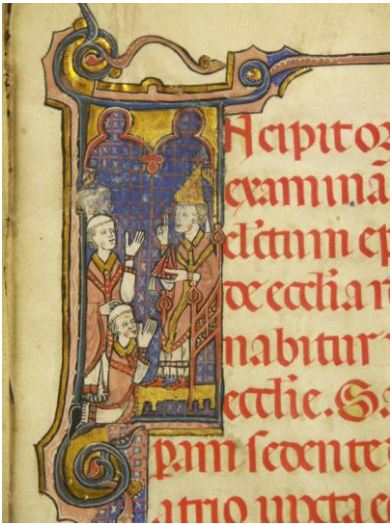 Incipit or
examina
electum ep
de ecclia
nabitur
ecclie. Sa
pam sedente
atrio iuxta e